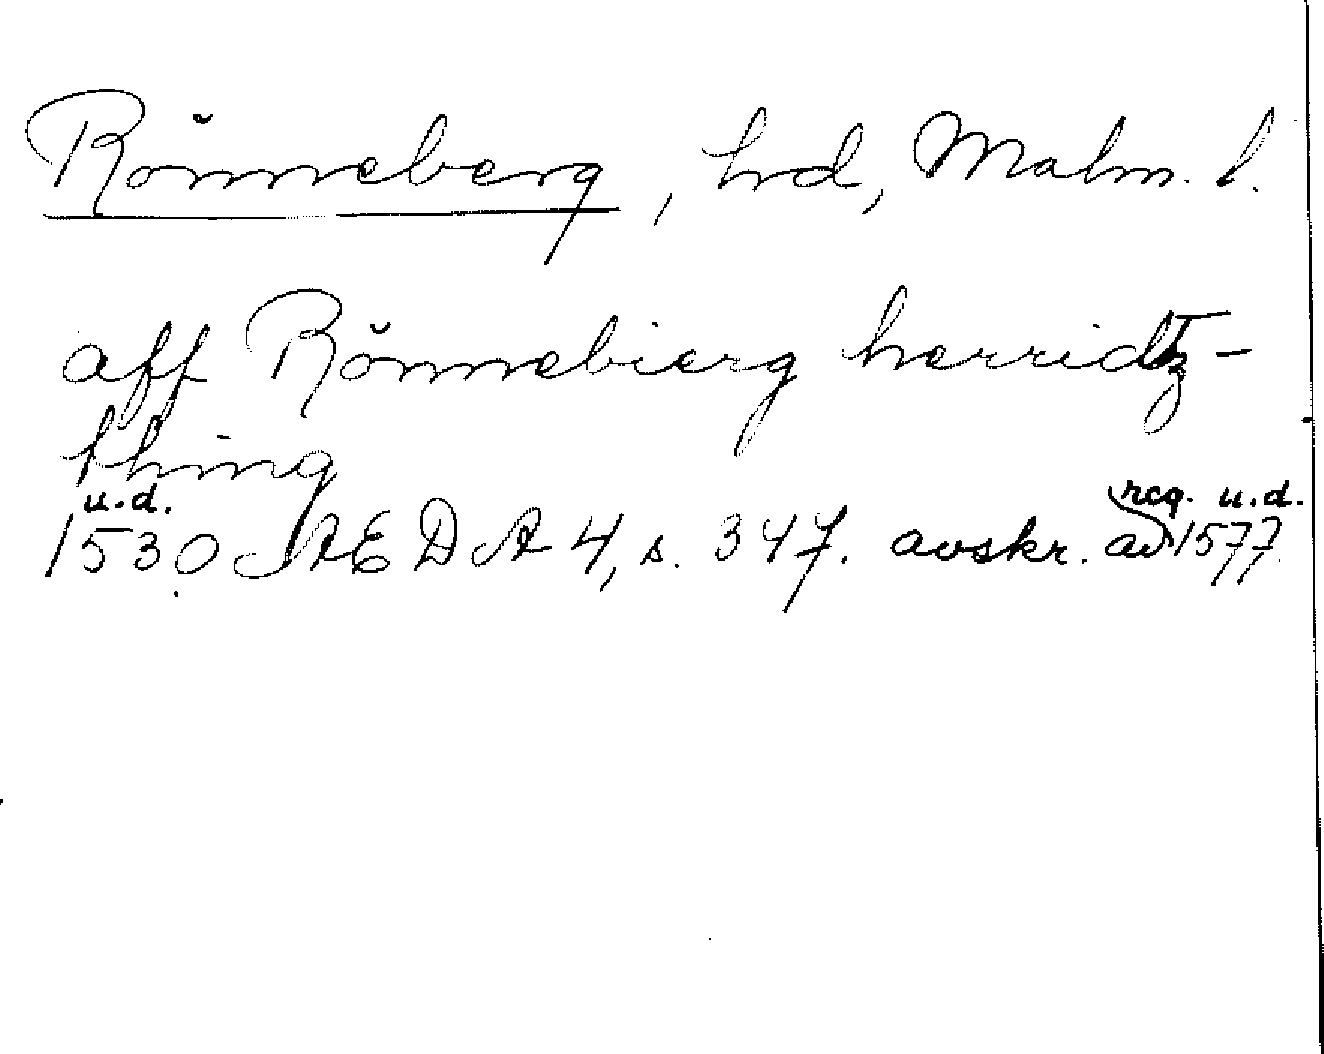 Rönneberg, hrd, Malm. l.
aff Rönnebierg herridtz-
thing
u.d. reg. u.d.
1530 AEDA 4, s. 347. avskr. av 1577.